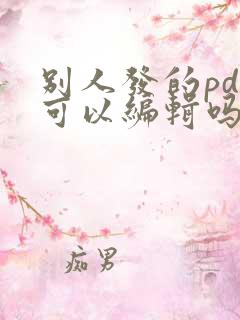 别人發的pd
可以編輯吗
痴男